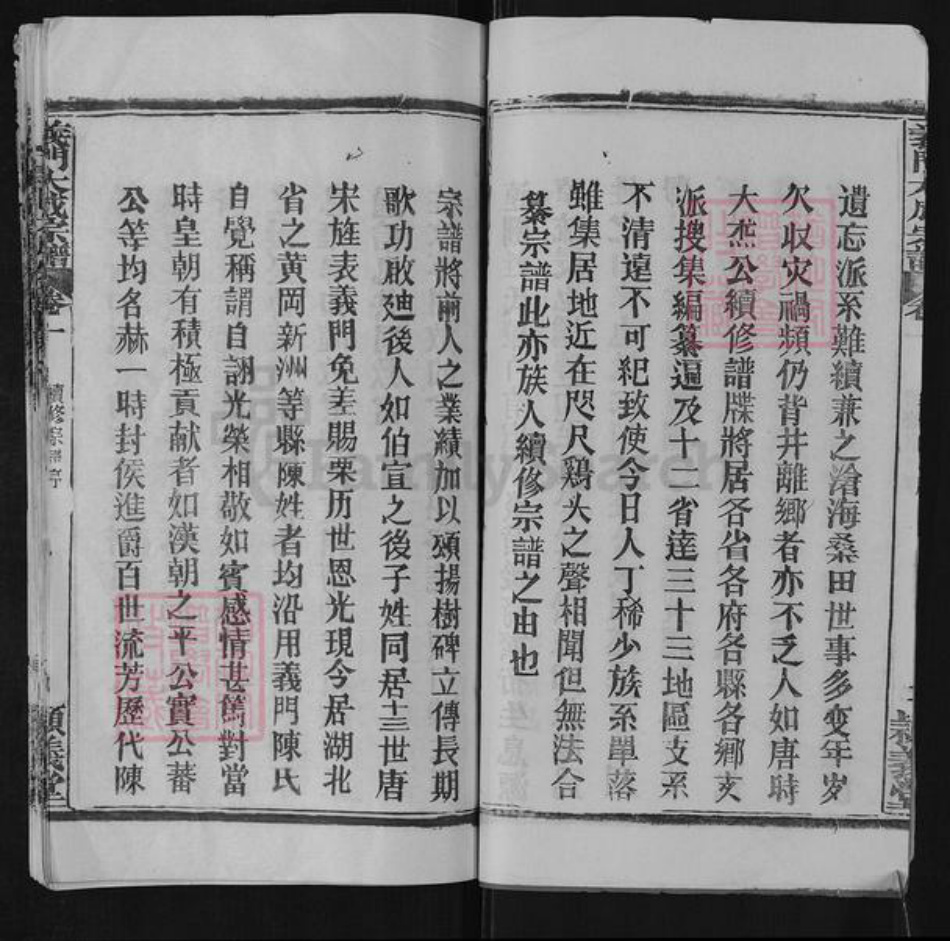 遺忘派系難續兼之滄海桑田世事多变年岁
欠収灾禍頻仍背井離鄉者亦不乏人如唐時
大杰公續修譜牒將居各省各府各縣各鄉支
派搜集編纂遍及十二省達三十三地區支系
不清遠不可纪致使今日人丁稀少族系單落
雖集居地近在咫尺鷄犬之聲相聞但無法合
纂宗譜此亦族人續修宗譜之由也
宗譜將前人之業績加以頌揚樹碑立傳長期
歌功啟廸後人如伯宣之後子姓同居十三世唐
宋旌表義門免差賜粟历世恩光現今居湖北
省之黄岡新洲等縣陳姓者均沿用義門陳氏
自覺稱謂自詡光榮相敬如賓感情甚篤對當
時皇朝有積極貢献者如漢朝之平公實公蕃
公等均名赫一時封侯進爵百世流芳歷代陳
義門大成宗譜
卷一
續修宗譜序
義門大成宗譜
卷一
FamilySearch